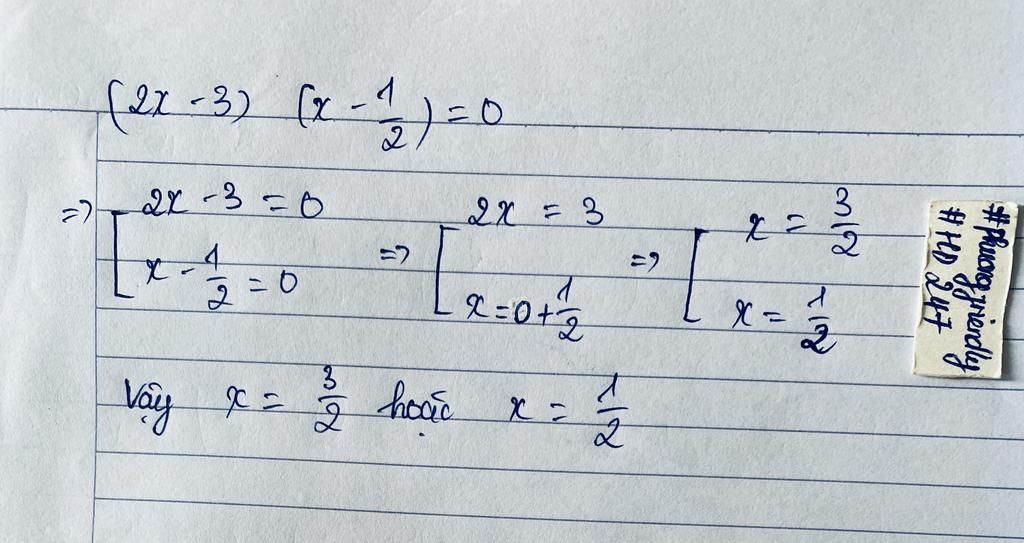 (2x - 3) (x - 1/2) = 0
=> [ 2x - 3 = 0 => [ 2x = 3 => [ x = 3/2
x - 1/2 = 0 x = 0 + 1/2 x = 1/2
Vậy x = 3/2 hoặc x = 1/2
#phuongfriendly
#HD 247